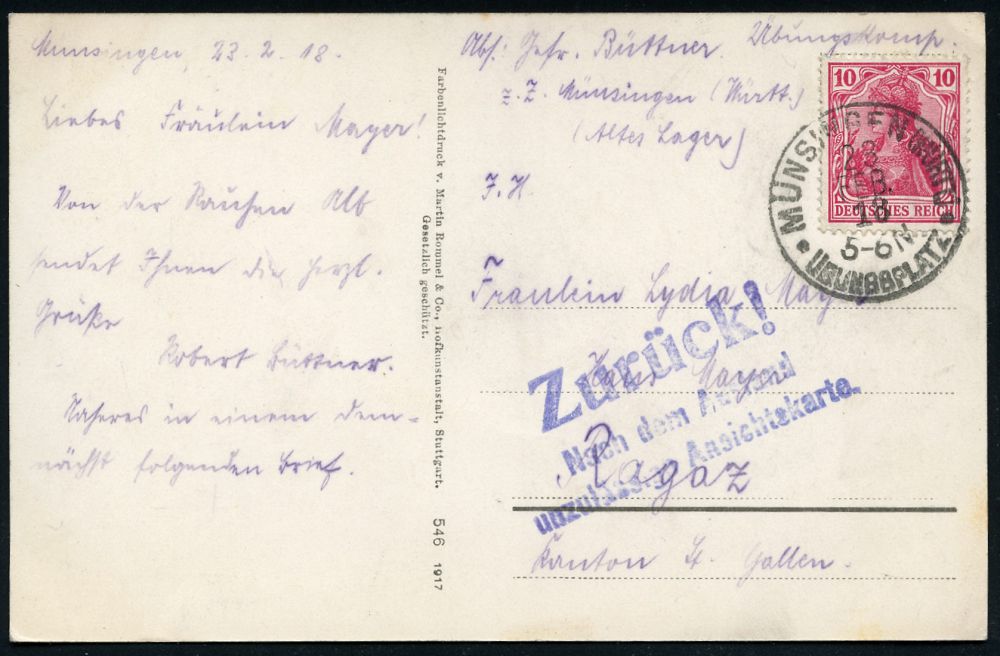 Münsingen, 23.2.18.
Liebes Fräulein Mayer!
Von der Rauhen Alb
sendet Ihnen die herzl.
Grüße
Robert Büttner.
Näheres in einem dem-
nächst folgenden Brief.
Farbenlichtdruck v. Martin Rommel & Co., Hofkunstanstalt, Stuttgart.
Gesetzlich geschützt.
546 1917
Abs: Gefr. Büttner Übungskomp.
z. Z. Münsingen (Württ.)
(Altes Lager)
Fräulein Lydia Mayer
Haus Mayer
Ragaz
Kanton St. Gallen.
Zurück!
Nach dem Ausland
unzulässige Ansichtskarte.
10 10
DEUTSCHES REICH
MÜNSINGEN (WÜRTT.)
23
FEB.
18
5-6 N
ÜBUNGSPLATZ